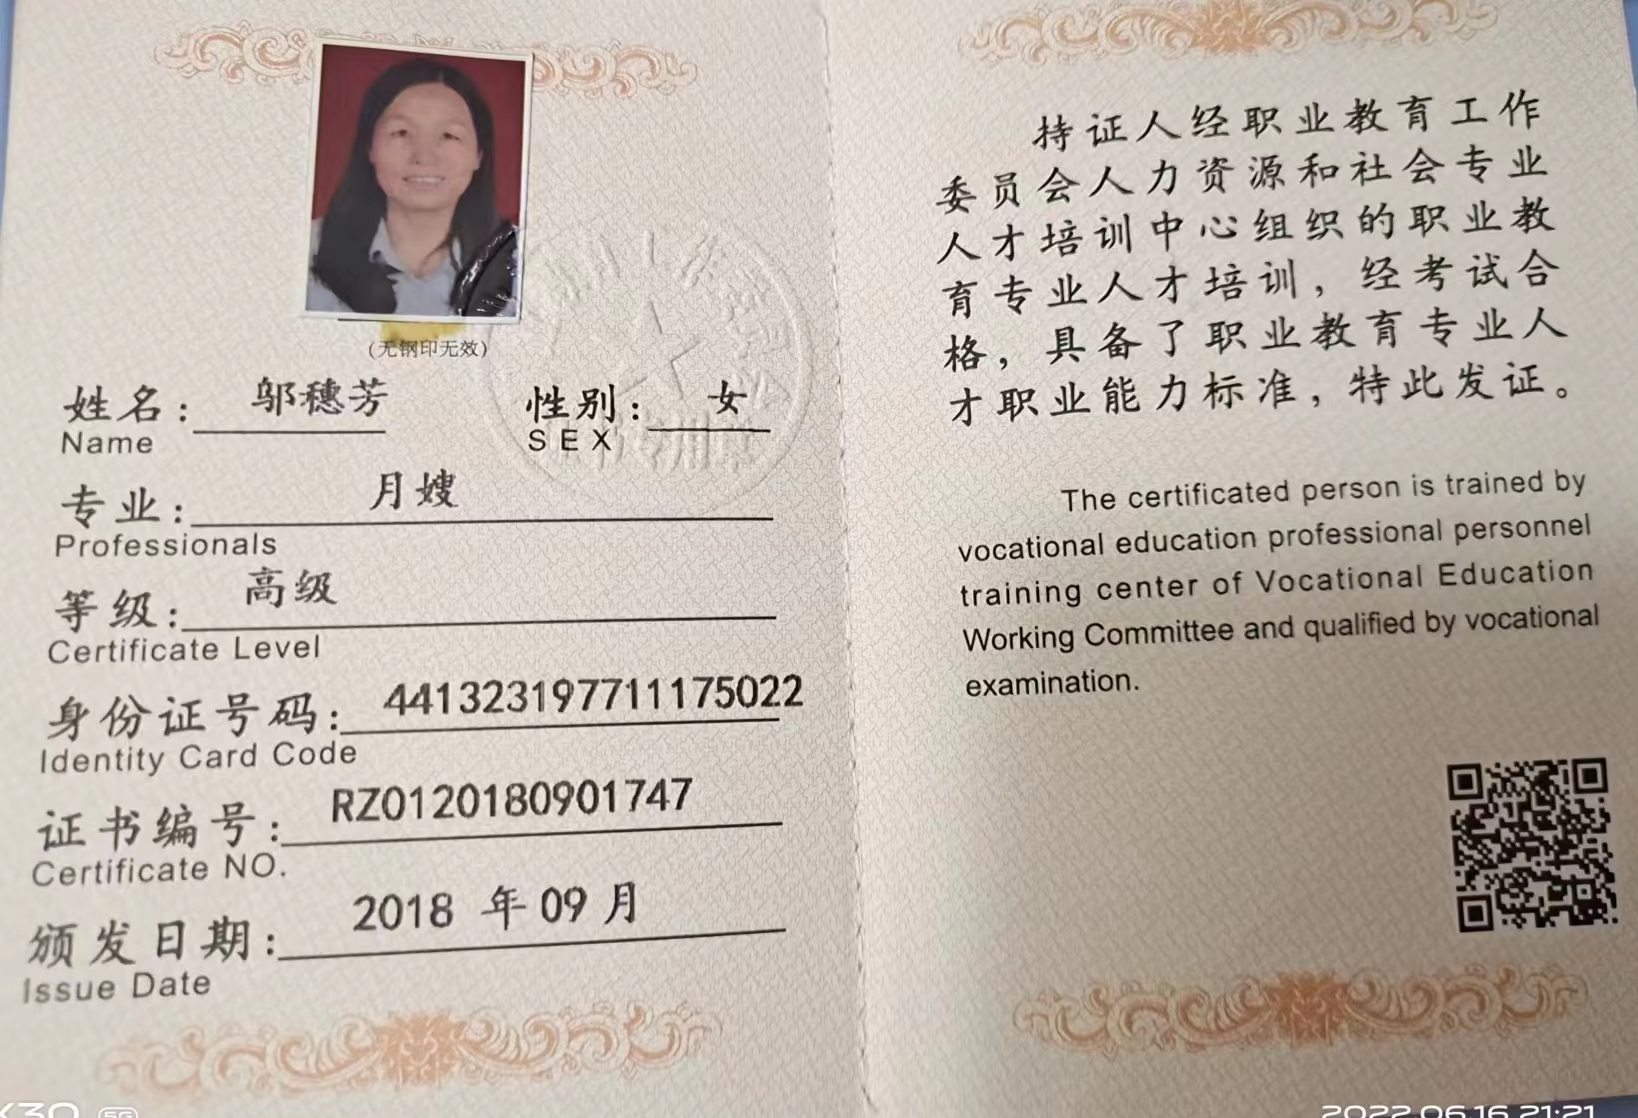 (无钢印无效)
姓名: 邬穗芳 性别: 女
Name SEX
专业: 月嫂
Professionals
等级: 高级
Certificate Level
身份证号码: 441323197711175022
Identity Card Code
证书编号: RZ0120180901747
Certificate NO.
颁发日期: 2018 年 09 月
Issue Date
持证人经职业教育工作
委员会人力资源和社会专业
人才培训中心组织的职业教
育专业人才培训，经考试合
格，具备了职业教育专业人
才职业能力标准，特此发证。
The certificated person is trained by
vocational education professional personnel
training center of Vocational Education
Working Committee and qualified by vocational
examination.
K30 5G
2022.06.16 21:21